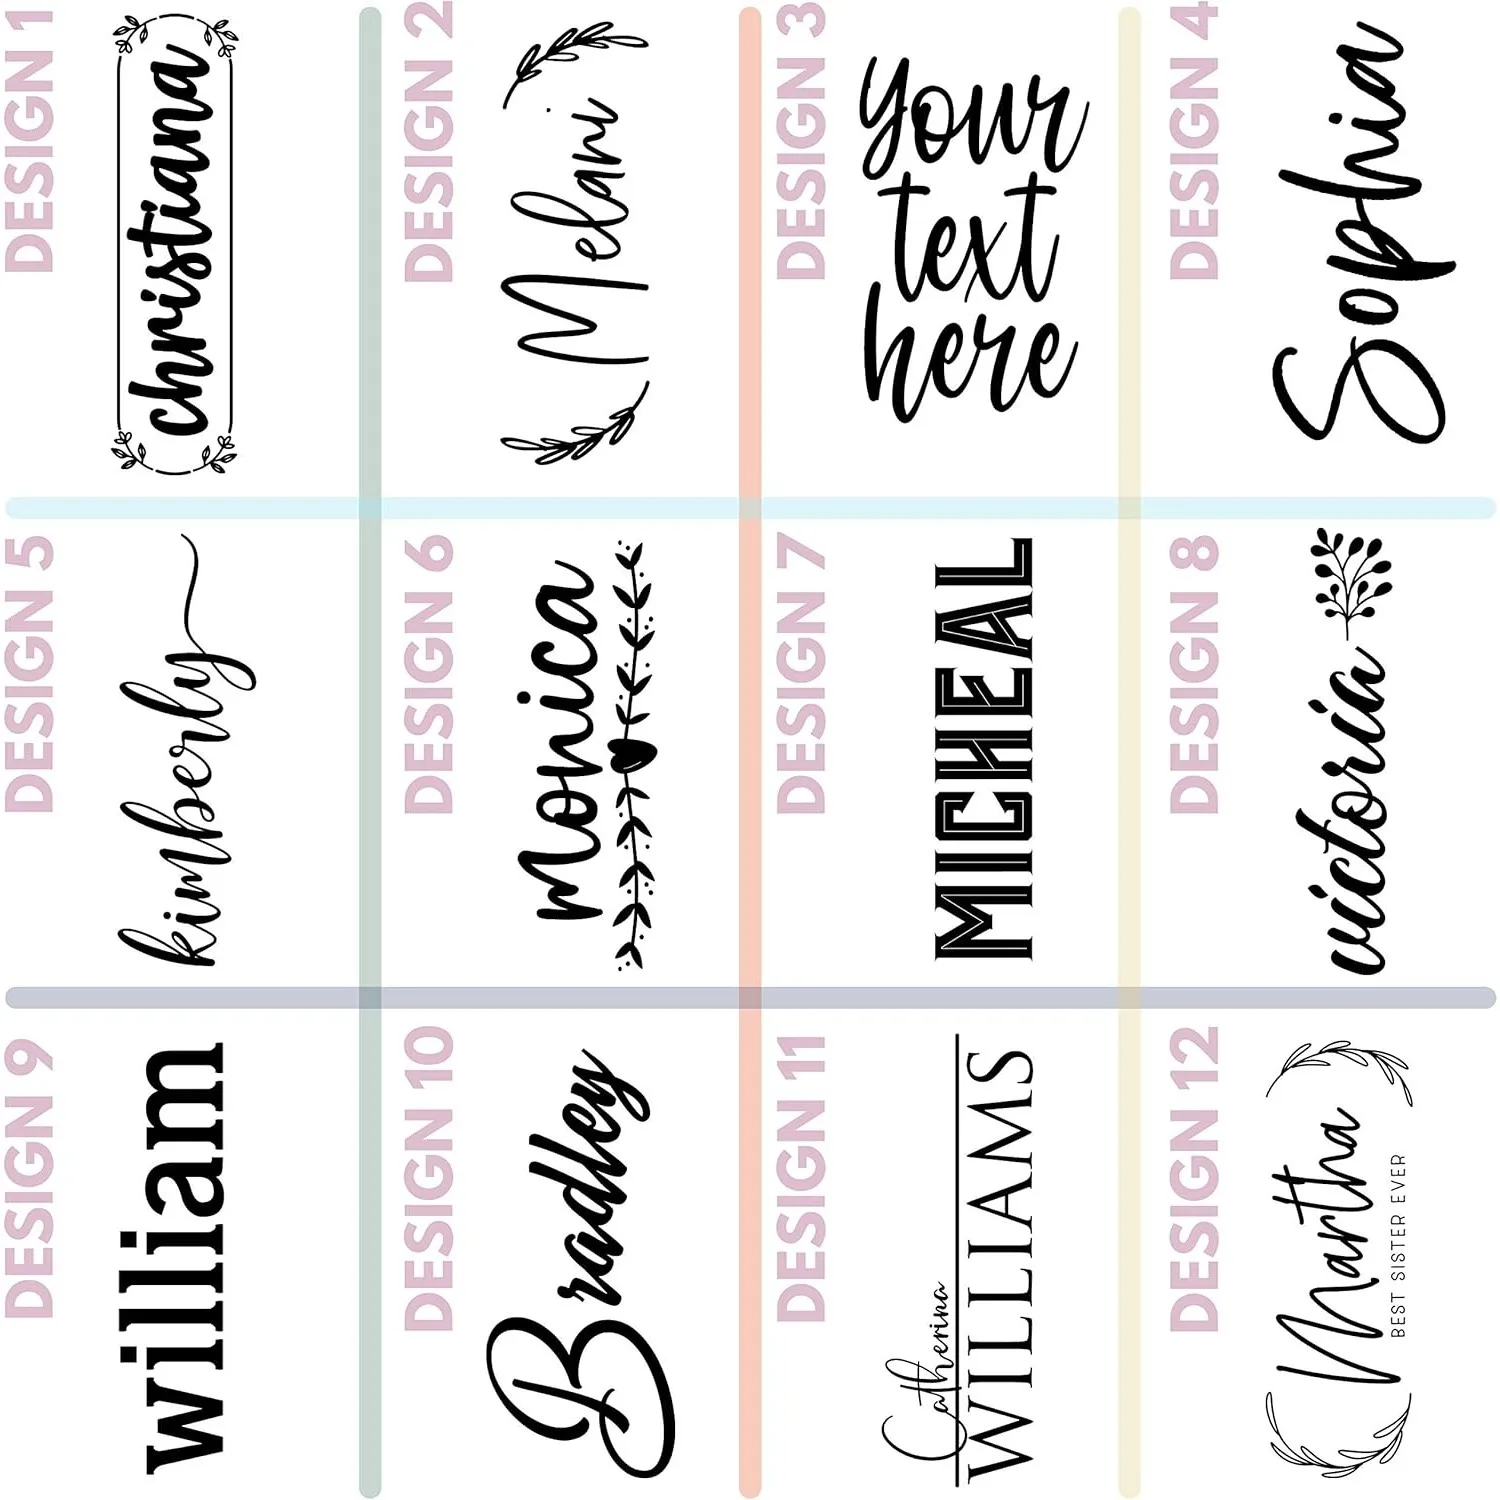 DESIGN 1
christiana
DESIGN 2
Melani
DESIGN 3
your
text
here
DESIGN 4
Sophia
DESIGN 5
kimberly
DESIGN 6
monica
DESIGN 7
MICHEAL
DESIGN 8
victoria
DESIGN 9
william
DESIGN 10
Bradley
DESIGN 11
Catherina
WILLIAMS
DESIGN 12
Martha
BEST SISTER EVER